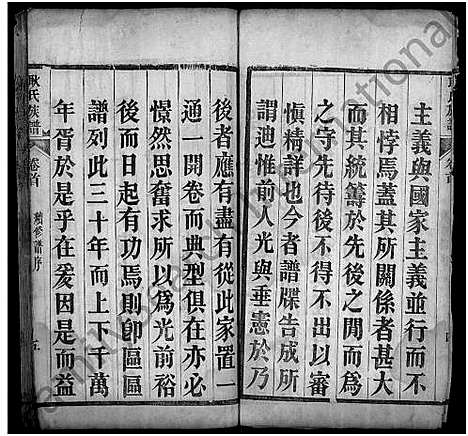 主義與國家主義並行而不
相悖焉蓋其所關係者甚大
而其統籌於先後之間而為
之守先待後不得不出以審
慎精詳如今者譜牒告成所
謂迪惟前人光與垂憲於乃
後者應有盡有從此家置一
通一開卷而典型俱在亦必
憬然奮求所以為光前裕
後而日起有功焉則卽區區
譜列此三十年而上下千萬
年胥於是乎在爰因是而益
耿氏族譜
卷首
續修譜序
五